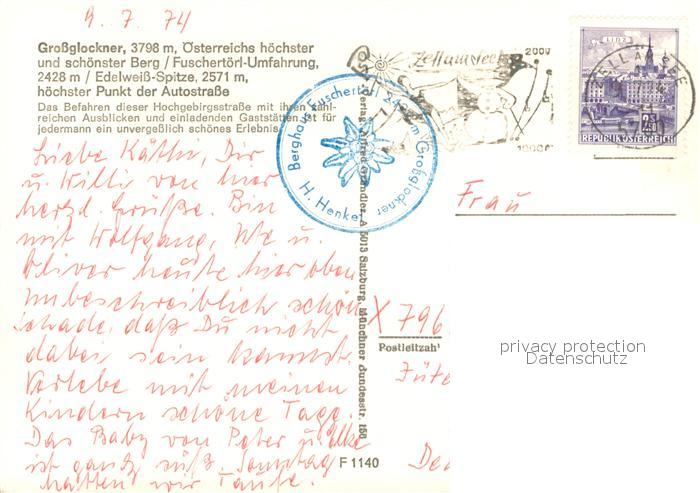 9. 7. 74
Großglockner, 3798 m, Österreichs höchster
und schönster Berg / Fuschertörl-Umfahrung,
2428 m / Edelweiß-Spitze, 2571 m,
höchster Punkt der Autostraße
Das Befahren dieser Hochgebirgsstraße mit ihren zahl-
reichen Ausblicken und einladenden Gaststätten ist für
jedermann ein unvergeßlich schönes Erlebnis
Liebe Käthi, Dir
u. Willi von hier
herzl. Grüße. Bin
mit Wolfgang, Ute u.
Oliver heute hier oben
unbeschreiblich schön
schade, daß Du nicht
dabei sein kannst.
Verlebe mit meinen
Kindern schöne Tage.
Das Baby von Peter u. Elke
ist ganz süß. Sonntag
hatten wir Taufe.
Berghaus Fuschertörl Großglockner
H. Henkel
A 5013 Salzburg, Münchner Bundesstr. 156
F 1140
Zell am See
LINZ
REPUBLIK ÖSTERREICH
Frau
X 796
Postleitzahl
Jüte
privacy protection
Datenschutz